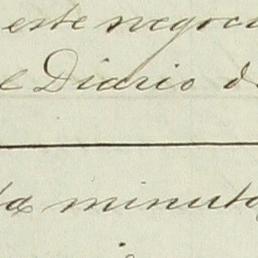 este negoci
el Diario d
ta minuto